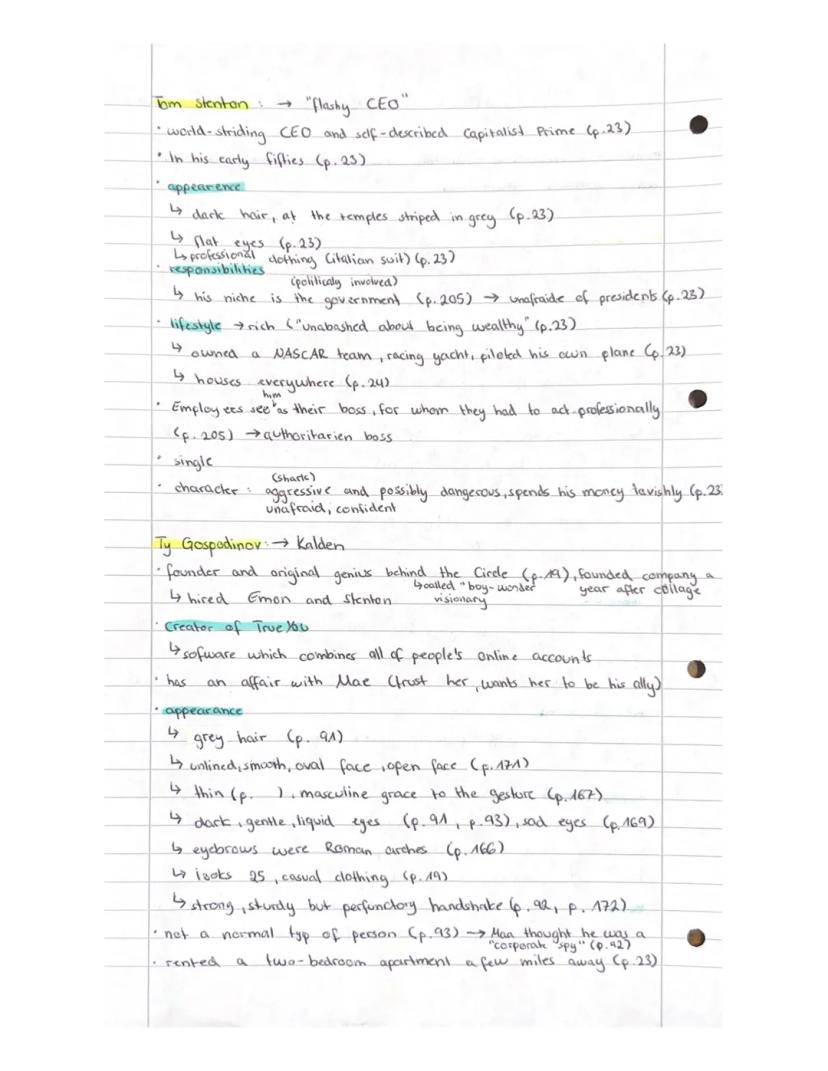 Tom Stenton : → "flashy CEO"
· world-striding CEO and self-described Capitalist Prime (p.23)
· In his early fifties (p.23)
· appearence
↳ dark hair, at the temples striped in grey (p.23)
↳ flat eyes (p.23)
↳ professional clothing (italian suit) (p.23)
· responsibilities
(politicaly involved)
↳ his niche is the government (p.205) → unafraide of presidents (p.23)
· lifestyle → rich ("unabashed about being wealthy" (p.23)
↳ owned a NASCAR team, racing yacht, piloted his own plane (p.23)
↳ houses everywhere (p.24)
· Employees see him as their boss, for whom they had to act professionally
(p.205) → authoritarien boss
· single
(shark)
· character : aggressive and possibly dangerous, spends his money lavishly (p.23
unafraid, confident
Ty Gospodinov: → Kalden
· founder and original genius behind the Circle (p.19), founded company a
↳ called "boy-wonder year after collage
↳ hired Emon and Stenton visionary
· Creator of TrueYou
↳ sofware which combines all of people's online accounts
· has an affair with Mae (trust her, wants her to be his ally)
· appearance
↳ grey hair (p. 91)
↳ unlined, smooth, oval face, open face (p.171)
↳ thin (p. ), masculine grace to the gesture (p.167)
↳ dark, gentle, liquid eyes (p.91, p.93), sad eyes (p.169)
↳ eyebrows were Roman arches (p.166)
↳ looks 25, casual clothing (p.19)
↳ strong, sturdy but perfunctory handshake (p.92, p.172)
· not a normal typ of person (p.93) → Maa thought he was a
"corporate spy" (p.92)
· rented a two-bedroom apartment a few miles away (p.23)